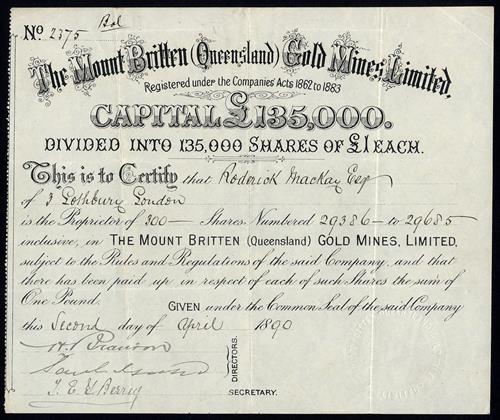 No. 2375
The Mount Britten (Queensland) Gold Mines, Limited,
Registered under the Companies' Acts 1862 to 1883
CAPITAL £135,000.
DIVIDED INTO 135,000 SHARES OF £1 EACH.
This is to Certify that Roderick Mackay Esqr
of 3 Lothbury London
is the Proprietor of 300 — Shares Numbered 29386 — to 29685
inclusive, in THE MOUNT BRITTEN (Queensland) GOLD MINES, LIMITED,
subject to the Rules and Regulations of the said Company, and that
there has been paid up in respect of each of such Shares the sum of
One Pound.
GIVEN under the Common Seal of the said Company
this Second day of April 1890
DIRECTORS.
SECRETARY.